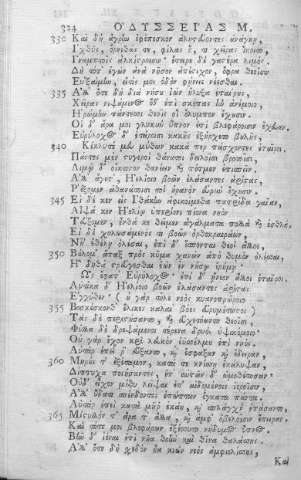 324 ΟΔΥΣΣΕΙΑΣ Μ.
330 Καὶ δὴ ἄγρην ἐφέπεσκον ἀλητεύοντες ἀνάγκῃ,
Ἰχθῦς, ὄρνιθάς τε, φίλας ὅ, τι χεῖρας ἵκοιτο,
Γναμπτοῖς ἀγκίστροισιν· ἔτειρε δὲ γαστέρα λιμός·
Δὴ τότ' ἐγὼν ἀνὰ νῆσον ἀπέστιχον, ὄφρα θεοῖσιν
Εὐξαίμην, εἴ τις μοι ὁδὸν φήνειε νέεσθαι.
335 Ἀλλ' ὅτε δὴ διὰ νήσου ἰὼν ἤλυξα ἑταίρους,
Χεῖρας νιψάμενος ὅθ' ἐπὶ σκέπας ἦν ἀνέμοιο,
Ἠρώμην πάντεσσι θεοῖς οἳ ὄλυμπον ἔχουσιν·
Οἱ δ' ἄρα μοι γλυκὺν ὕπνον ἐπὶ βλεφάροισιν ἔχευαν.
Εὐρύλοχος δ' ἑτάροισι κακῆς ἐξήρχετο βουλῆς,
340 Κέκλυτέ μευ μύθων κακά περ πάσχοντες ἑταῖροι.
Πάντες μὲν στυγεροὶ θάνατοι δειλοῖσι βροτοῖσι,
Λιμῷ δ' οἴκτιστον θανέειν καὶ πότμον ἐπισπεῖν.
Ἀλλ' ἄγετ', Ἠελίοιο βοῶν ἐλάσαντες ἀρίστας,
Ῥέξομεν ἀθανάτοισι τοὶ οὐρανὸν εὐρὺν ἔχουσιν.
345 Εἰ δέ κεν εἰς Ἰθάκην ἀφικοίμεθα πατρίδα γαῖαν,
Αἶψά κεν Ἠελίῳ ὑπερίονι πίονα νηὸν
Τεύξομεν, ἔνθα κε θεῖμεν ἀγάλματα πολλὰ καὶ ἐσθλά.
Εἰ δὲ χολωσάμενός τι βοῶν ὀρθοκραιράων
Νῆ' ἐθέλῃ ὀλέσαι, ἐπὶ δ' ἕσπονται θεοὶ ἄλλοι,
350 Βούλομ' ἅπαξ πρὸς κῦμα χανὼν ἀπὸ θυμὸν ὀλέσσαι,
Ἢ δηθὰ στρεύγεσθαι ἐὼν ἐν νήσῳ ἐρήμῃ.
Ὣς ἔφατ' Εὐρύλοχος· ἐπὶ δ' ᾔνεον ἄλλοι ἑταῖροι.
Αὐτίκα δ' Ἠελίοιο βοῶν ἐλάσαντες ἀρίστας
Ἐγγύθεν· (οὐ γὰρ τῆλε νεὸς κυανοπρώροιο
355 Βοσκέσκονθ' ἕλικες καλαὶ βόες εὐρυμέτωποι)
Τὰς δὲ περιστήσαντο, καὶ εὐχετόωντο θεοῖσι,
Φύλλα δρεψάμενοι τέρενα δρυὸς ὑψικόμοιο·
Οὐ γὰρ ἔχον κρῖ λευκὸν ἐϋσσέλμου ἐπὶ νηός.
Αὐτὰρ ἐπεί ῥ' εὔξαντο, καὶ ἔσφαξαν καὶ ἔδειραν,
360 Μηρούς τ' ἐξέταμον, κατά τε κνίσσῃ ἐκάλυψαν,
Δίπτυχα ποιήσαντες, ἐπ' αὐτῶν δ' ὠμοθέτησαν·
Οὐδ' εἶχον μέθυ λεῖψαι ἐπ' αἰθομένοις ἱεροῖσιν,
Ἀλλ' ὕδατι σπένδοντες ἐπώπτων ἔγκατα πάντα.
Αὐτὰρ ἐπεὶ κατὰ μῆρ' ἐκάη, καὶ σπλάγχν' ἐπάσαντο,
365 Μίστυλλόν τ' ἄρα τ' ἄλλα, καὶ ἀμφ' ὀβελοῖσιν ἔπειραν.
Καὶ τότε μοι βλεφάρων ἐξέσσυτο νήδυμος ὕπνος·
Βῆν δ' ἰέναι ἐπὶ νῆα θοὴν καὶ θῖνα θαλάσσης.
Ἀλλ' ὅτε δὴ σχεδὸν ἦα κιὼν νεὸς ἀμφιελίσσης,
Καὶ